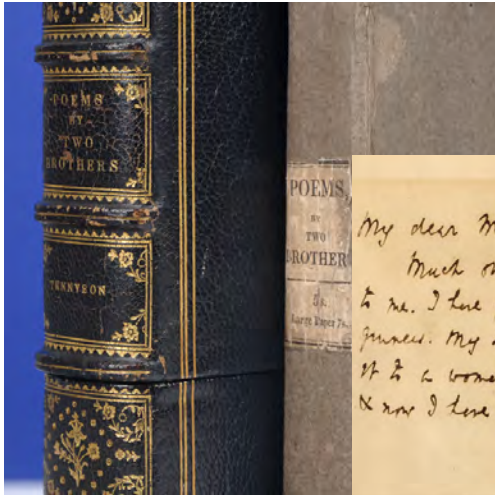 POEMS
BY
TWO
BROTHERS
TENNYSON.
POEMS,
BY
TWO
BROTHER
5s.
Large Paper 7s.
My dear M
Much
to me. I have
My
it to a
& now I have